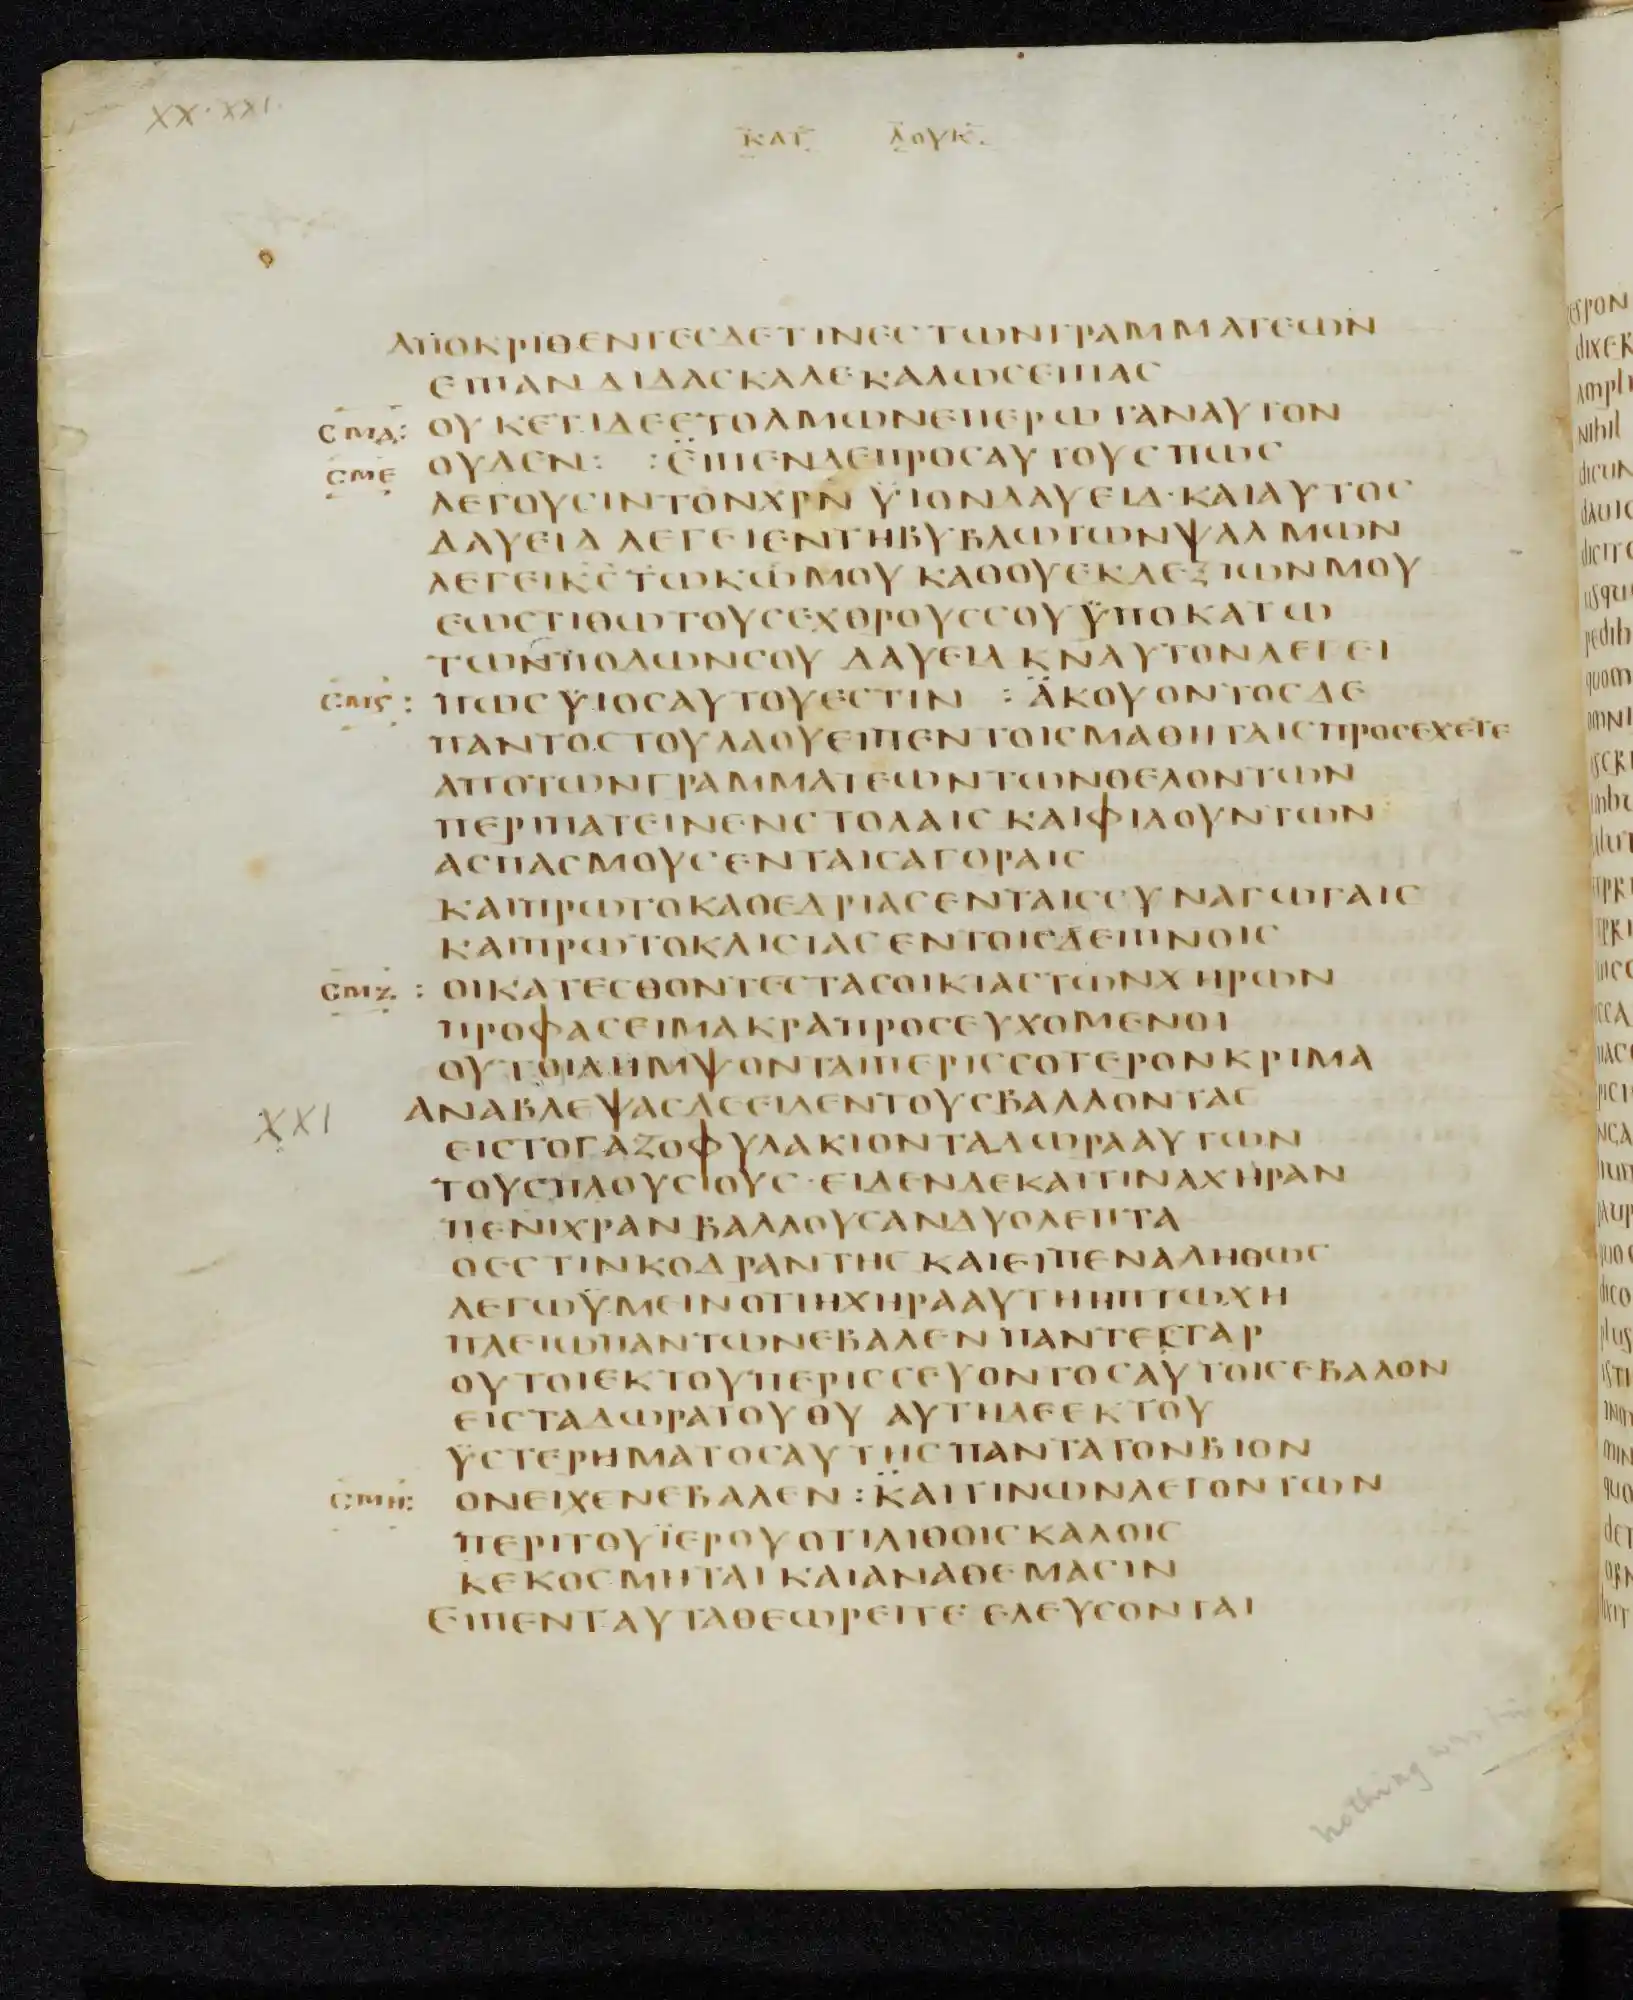 XX·XXI.
ΚΑΤ ΛΟΥΚ.
ΑΠΟΚΡΙΘΕΝΤΕΣΔΕΤΙΝΕΣΤΩΝΓΡΑΜΜΑΤΕΩΝ
ΕΙΠΑΝΔΙΔΑΣΚΑΛΕΚΑΛΩΣΕΙΠΑΣ
ΣΜΔ: ΟΥΚΕΤΙΔΕΕΤΟΛΜΩΝΕΠΕΡΩΤΑΝΑΥΤΟΝ
ΣΜΕ ΟΥΔΕΝ: :ΕΙΠΕΝΔΕΠΡΟΣΑΥΤΟΥΣΠΩΣ
ΛΕΓΟΥΣΙΝΤΟΝΧΡΝ ΫΙΟΝΔΑΥΕΙΔ·ΚΑΙΑΥΤΟΣ
ΔΑΥΕΙΔ ΛΕΓΕΙΕΝΤΗΒΥΒΛΩΤΩΝΨΑΛΜΩΝ
ΛΕΓΕΙΚΣΤΩΚΩΜΟΥ ΚΑΘΟΥΕΚΔΕΞΙΩΝΜΟΥ
ΕΩΣΤΙΘΩΤΟΥΣΕΧΘΡΟΥΣΣΟΥΫΠΟΚΑΤΩ
ΤΩΝΠΟΔΩΝΣΟΥ ΔΑΥΕΙΔ ΚΝΑΥΤΟΝΛΕΓΕΙ
ΣΜϚ: ΠΩΣΫΙΟΣΑΥΤΟΥΕΣΤΙΝ :ΑΚΟΥΟΝΤΟΣΔΕ
ΠΑΝΤΟΣΤΟΥΛΑΟΥΕΙΠΕΝΤΟΙΣΜΑΘΗΤΑΙΣΠΡΟΣΕΧΕΤΕ
ΑΠΟΤΩΝΓΡΑΜΜΑΤΕΩΝΤΩΝΘΕΛΟΝΤΩΝ
ΠΕΡΙΠΑΤΕΙΝΕΝΣΤΟΛΑΙΣΚΑΙΦΙΛΟΥΝΤΩΝ
ΑΣΠΑΣΜΟΥΣΕΝΤΑΙΣΑΓΟΡΑΙΣ
ΚΑΙΠΡΩΤΟΚΑΘΕΔΡΙΑΣΕΝΤΑΙΣΣΥΝΑΓΩΓΑΙΣ
ΚΑΙΠΡΩΤΟΚΛΙΣΙΑΣΕΝΤΟΙΣΔΕΙΠΝΟΙΣ
ΣΜΖ: ΟΙΚΑΤΕΣΘΟΝΤΕΣΤΑΣΟΙΚΙΑΣΤΩΝΧΗΡΩΝ
ΠΡΟΦΑΣΕΙΜΑΚΡΑΠΡΟΣΕΥΧΟΜΕΝΟΙ
ΟΥΤΟΙΛΗΜΨΟΝΤΑΙΠΕΡΙΣΣΟΤΕΡΟΝΚΡΙΜΑ
XXI ΑΝΑΒΛΕΨΑΣΔΕΕΙΔΕΝΤΟΥΣΒΑΛΛΟΝΤΑΣ
ΕΙΣΤΟΓΑΖΟΦΥΛΑΚΙΟΝΤΑΔΩΡΑΑΥΤΩΝ
ΤΟΥΣΠΛΟΥΣΙΟΥΣ·ΕΙΔΕΝΔΕΚΑΙΤΙΝΑΧΗΡΑΝ
ΠΕΝΙΧΡΑΝΒΑΛΛΟΥΣΑΝΔΥΟΛΕΠΤΑ
ΟΕΣΤΙΝΚΟΔΡΑΝΤΗΣΚΑΙΕΙΠΕΝΑΛΗΘΩΣ
ΛΕΓΩΫΜΕΙΝΟΤΙΗΧΗΡΑΑΥΤΗΗΠΤΩΧΗ
ΠΛΕΙΩΠΑΝΤΩΝΕΒΑΛΕΝΠΑΝΤΕΣΓΑΡ
ΟΥΤΟΙΕΚΤΟΥΠΕΡΙΣΣΕΥΟΝΤΟΣΑΥΤΟΙΣΕΒΑΛΟΝ
ΕΙΣΤΑΔΩΡΑΤΟΥΘΥ ΑΥΤΗΔΕΕΚΤΟΥ
ΫΣΤΕΡΗΜΑΤΟΣΑΥΤΗΣΠΑΝΤΑΤΟΝΒΙΟΝ
ΣΜΗ: ΟΝΕΙΧΕΝΕΒΑΛΕΝ:ΚΑΙΤΙΝΩΝΛΕΓΟΝΤΩΝ
ΠΕΡΙΤΟΥΪΕΡΟΥΟΤΙΛΙΘΟΙΣΚΑΛΟΙΣ
ΚΕΚΟΣΜΗΤΑΙΚΑΙΑΝΑΘΕΜΑΣΙΝ
ΕΙΠΕΝΤΑΥΤΑΘΕΩΡΕΙΤΕ ΕΛΕΥΣΟΝΤΑΙ
nothing